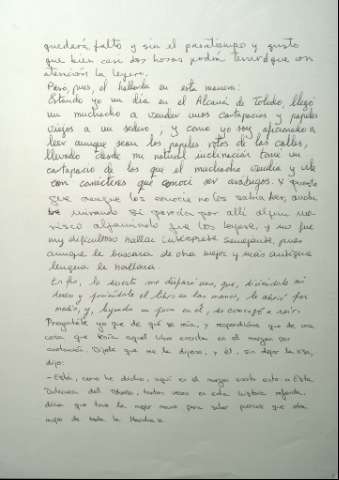 quedará falto y sin el pasatiempo y gusto
que bien casi dos horas podrá tener el que con
atención la leyere.
Pasó, pues, el hallarla en esta manera:
Estando yo un día en el Alcaná de Toledo, llegó
un muchacho a vender unos cartapacios y papeles
viejos a un sedero; y como yo soy aficionado a
leer aunque sean los papeles rotos de las calles,
llevado desde mi natural inclinación tomé un
cartapacio de los que el muchacho vendía y vile
con caracteres que conocí ser arábigos. Y puesto
que aunque los conocía no los sabía leer, anduve
mirando si parecía por allí algún mo-
risco aljamiado que los leyese, y no fue
muy dificultoso hallar intérprete semejante, pues
aunque le buscara de otra mejor y más antigua
lengua le hallara.
En fin, la suerte me deparó uno, que, diciéndole mi
deseo y poniéndole el libro en las manos, le abrió por
medio, y, leyendo un poco en él, se comenzó a reír.
Preguntéle yo que de qué se reía, y respondióme que de una
cosa que tenía aquel libro escrita en el margen por
anotación. Díjele que me la dijese, y él, sin dejar la risa,
dijo:
-Está, como he dicho, aquí en el margen escrito esto: «Esta
Dulcinea del Toboso, tantas veces en esta historia referida,
dicen que tuvo la mejor mano para salar puercos que otra
mujer de toda la Mancha».